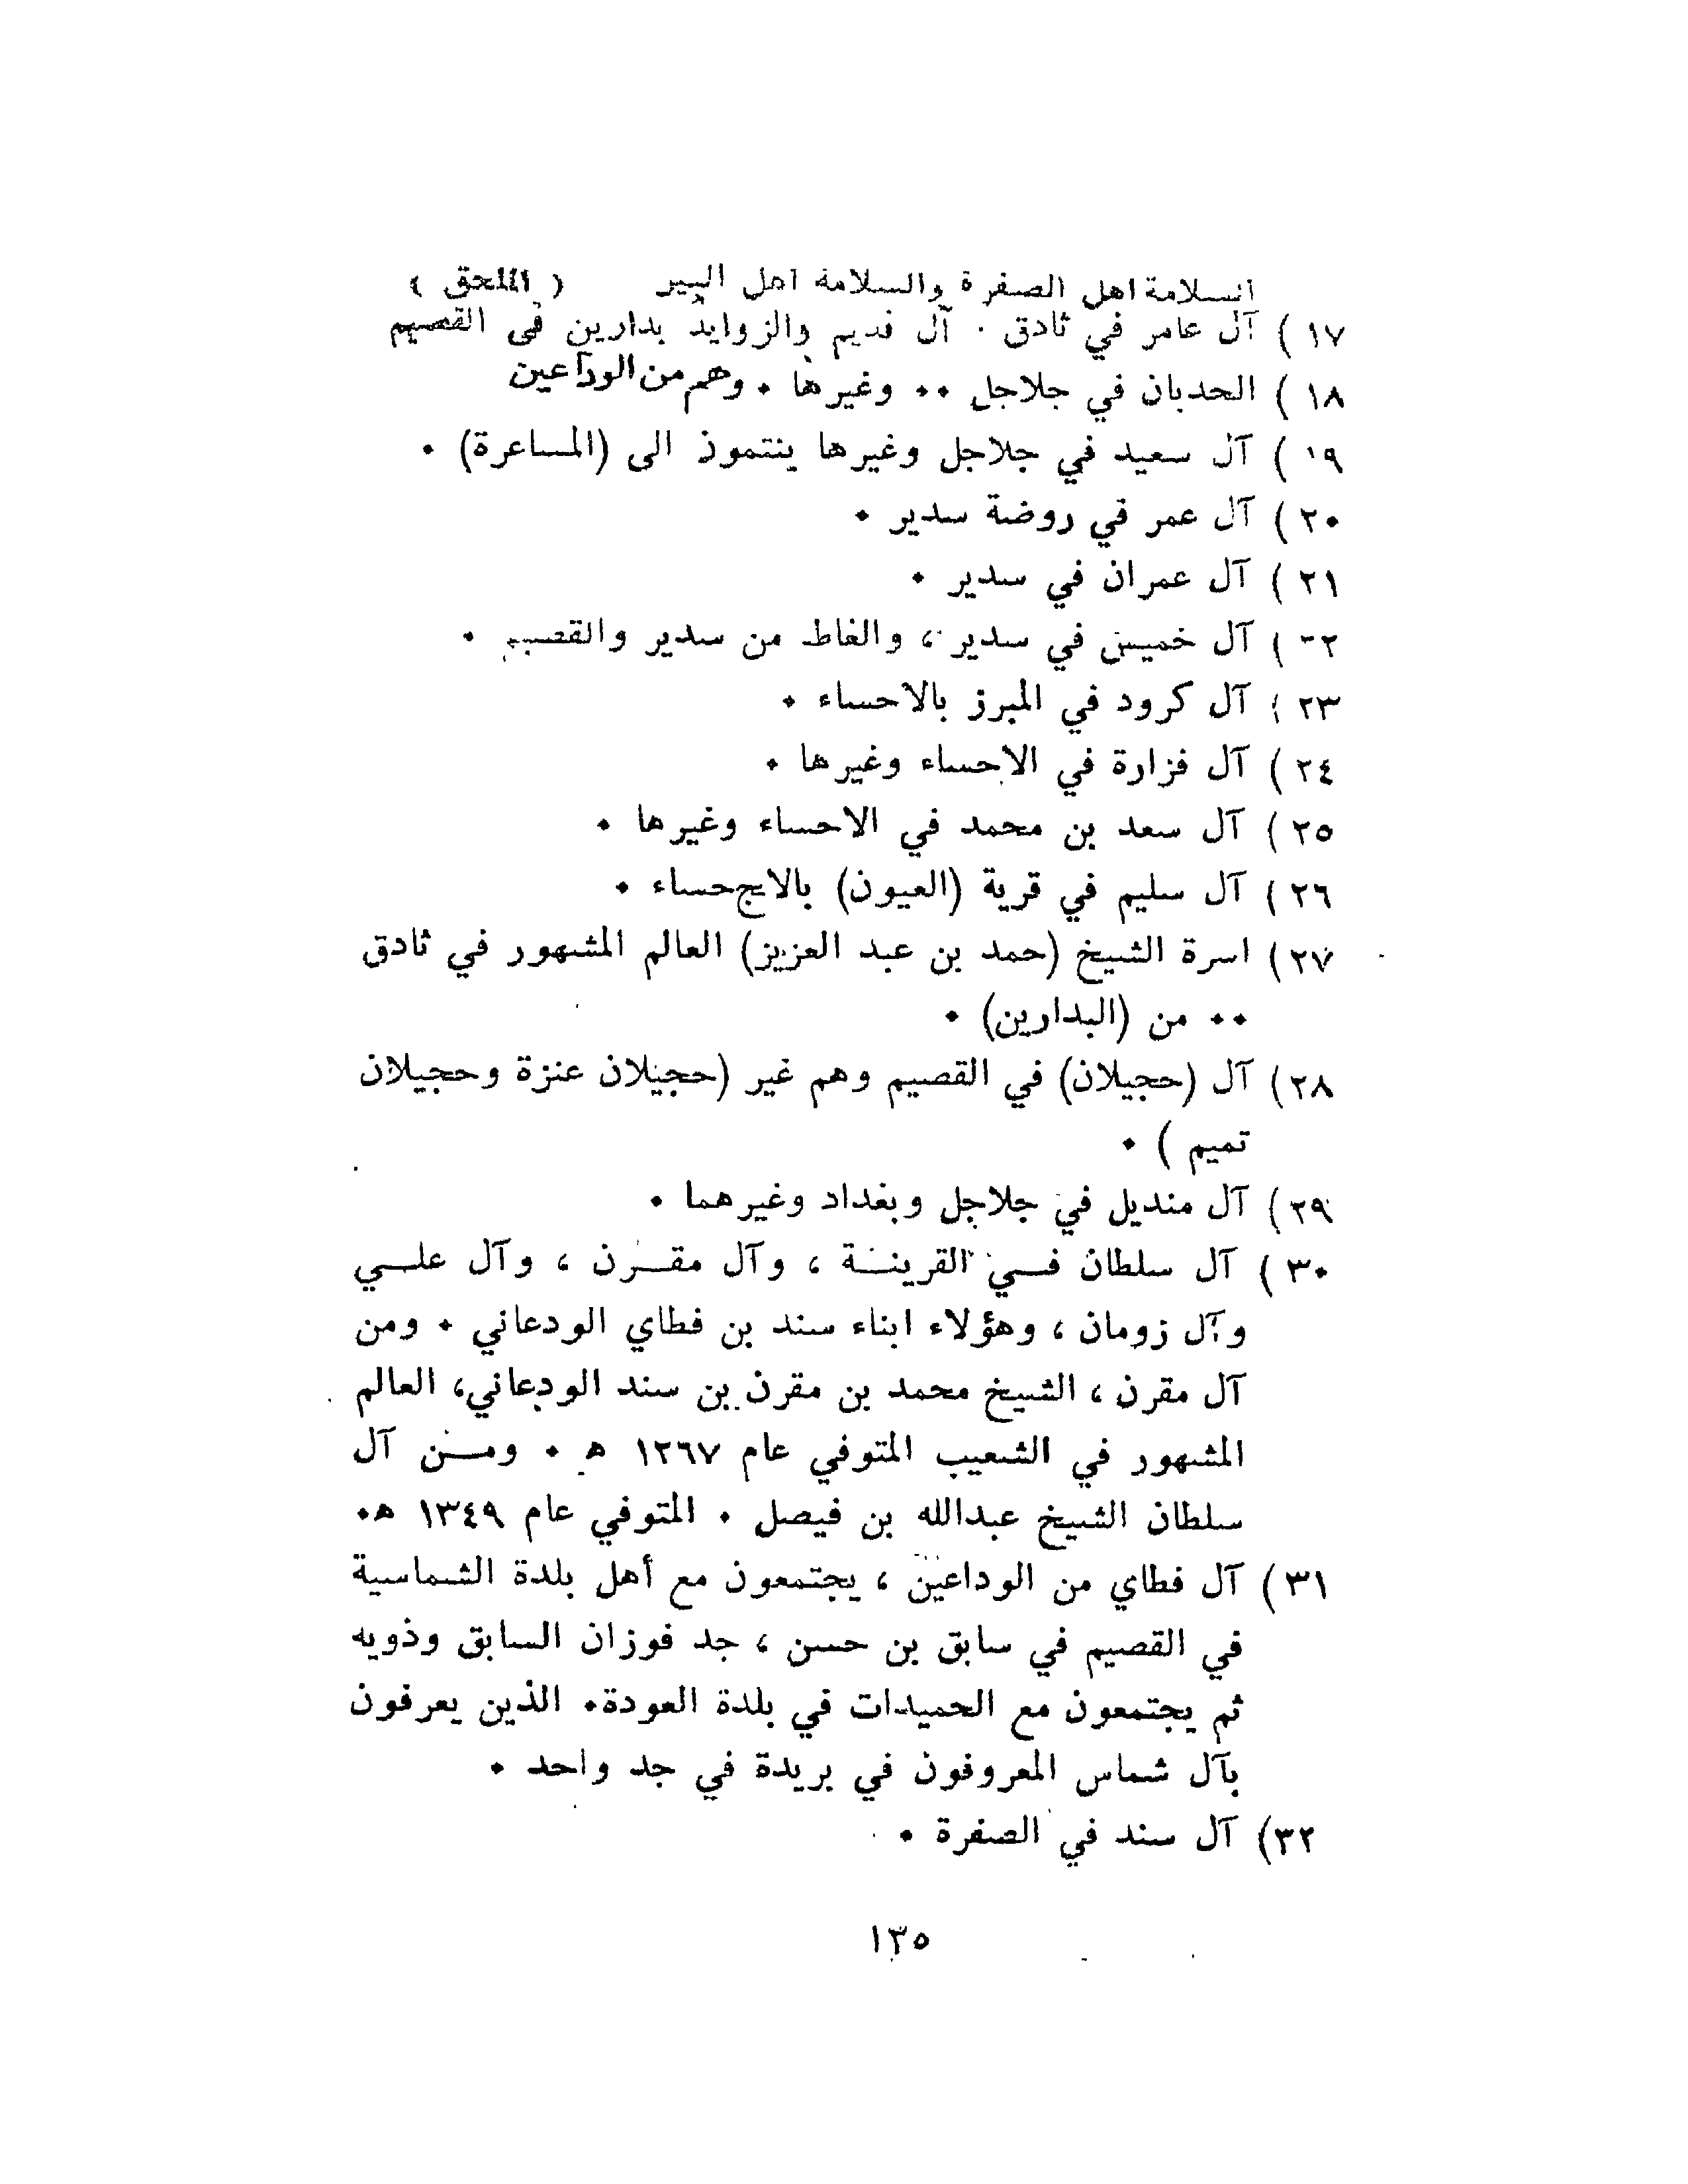 السلامة اهل الصفرة والسلامة اهل البير ( الملحق )
١٧ ) آل عامر في ثادق . آل قديم والزوايد بدارين في القصيم
١٨ ) الحدبان في جلاجل .. وغيرها . وهم من الوداعين
١٩ ) آل سعيد في جلاجل وغيرها ينتمون الى (المساعرة) .
٢٠ ) آل عمر في روضة سدير .
٢١ ) آل عمران في سدير .
٢٢ ) آل خميس في سدير ، والغاط من سدير والقصيم .
٢٣ ) آل كرود في المبرز بالاحساء .
٢٤ ) آل فزارة في الاحساء وغيرها .
٢٥ ) آل سعد بن محمد في الاحساء وغيرها .
٢٦ ) آل سليم في قرية (العيون) بالاجحساء .
٢٧ ) اسرة الشيخ (حمد بن عبد العزيز) العالم المشهور في ثادق
.. من (البدارين) .
٢٨ ) آل (حجيلان) في القصيم وهم غير (حجيلان عنزة وحجيلان
تميم ) .
٢٩ ) آل منديل في جلاجل وبغداد وغيرهما .
٣٠ ) آل سلطان فــي القرينــة ، وآل مقــرن ، وآل علــي
وآل زومان ، وهؤلاء ابناء سند بن فطاي الودعاني . ومن
آل مقرن ، الشيخ محمد بن مقرن بن سند الودعاني، العالم
المشهور في الشعيب المتوفي عام ١٢٦٧ هـ . ومــن آل
سلطان الشيخ عبدالله بن فيصل . المتوفي عام ١٣٤٩ هـ.
٣١ ) آل فطاي من الوداعين ، يجتمعون مع أهل بلدة الشماسية
في القصيم في سابق بن حسن ، جد فوزان السابق وذويه
ثم يجتمعون مع الحميدات في بلدة العودة. الذين يعرفون
بآل شماس المعروفون في بريدة في جد واحد .
٣٢) آل سند في الصفرة .
١٣٥